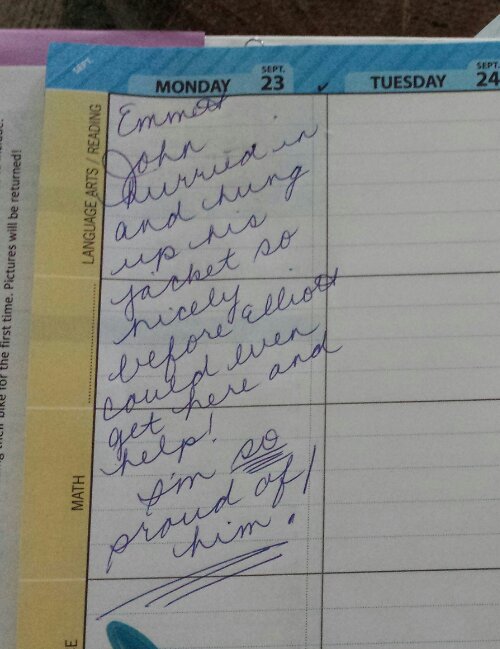 SEPT.
MONDAY SEPT. 23 ✓ TUESDAY SEPT. 24
LANGUAGE ARTS / READING
Emmett
John
hurried in
and hung
up his
jacket so
nicely
before Elliott
could even
get here and
help!
I'm so
proud of
him.
MATH
E
ng their bike for the first time. Pictures will be returned!